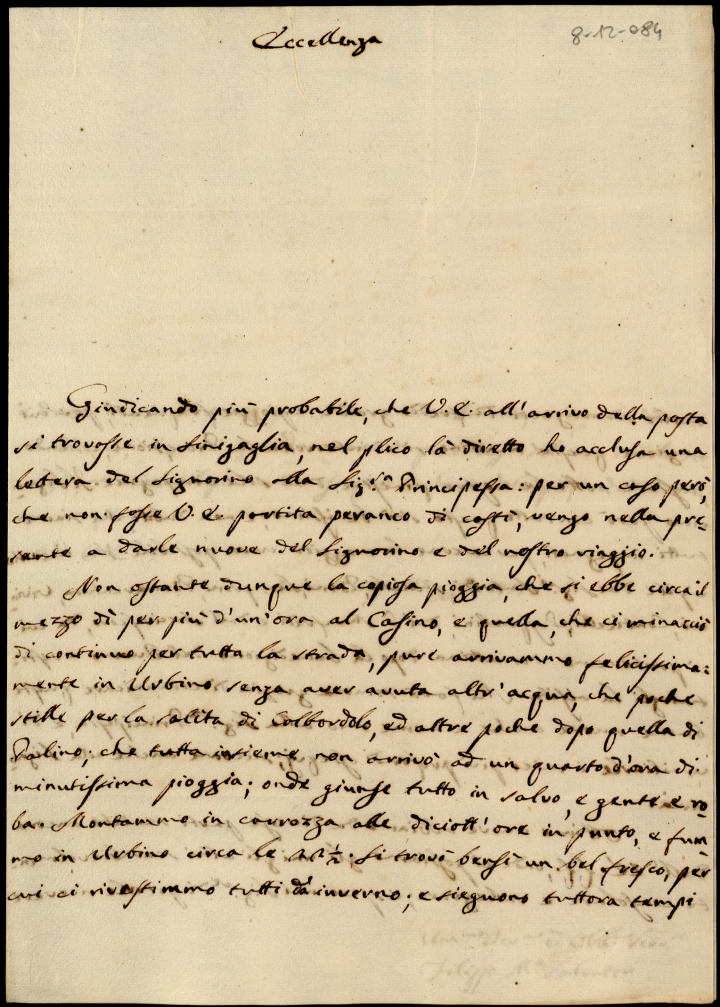 8-12-084
Eccellenza
Giudicando più probabile, che V. E. all'arrivo della posta
si trovasse in Sinigaglia, nel plico là diretto ho acclusa una
lettera del Signorino alla Sig.ra Principessa: per un caso però,
che non fosse V. E. partita peranco di costì, vengo nella pre=
sente a darle nuove del Signorino e del nostro viaggio.
Non ostante dunque la copiosa pioggia, che si ebbe circa il
mezzo dì per più d'un'ora al Casino, e quella, che ci minacciò
di continuo per tutta la strada, pure arrivammo felicissima=
mente in Urbino senza aver avuta altr'acqua, che poche
stille per la salita di Colbordolo, ed altre poche dopo quella di
che tutta insieme non arrivò ad un quarto d'ora di
minutissima pioggia; onde giunse tutto in salvo, e gente e ro=
ba. Montammo in carrozza alle diciott'ore in punto, e fum=
mo in Urbino circa le Si trovò bensì un bel fresco, per
cui ci rivestimmo tutti da inverno; e sieguono tuttora tempi